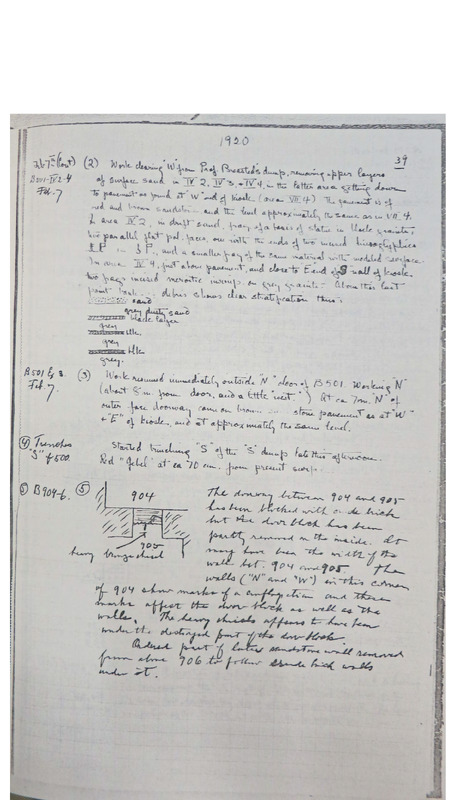 1920
39
Feb 7th (Cont)
B501-IV2-4
Feb. 7
(2) Work clearing "W" from Prof. Breasted's dump, removing upper layers
of surface sand in IV 2, IV 3, + IV 4, in the latter area getting down
to pavement as found at "W" end of kiosk (area VII 4) The pavement is of
red and brown sandstone and the level approximately the same as in VII. 4.
In area IV 2, in drift sand, frag. of a bases of statue in black granite,
two parallel flat faces, one with the ends of two incised hieroglyphics
and a smaller frag of the same material with molded surface.
In area IV 4, just above pavement, and close to E end of S wall of kiosk,
two frags incised inscrip. on grey granite. About this last
debris shows clear stratification thus:
sand
grey dusty sand
black layer
grey
blk.
grey
blk
grey.
B501 Ex 3.
Feb. 7.
(3) Work resumed immediately outside "N" door of B501. Working "N"
(about 8 m. from door, and a little "west") At ca 7m. "N" of
outer face doorway came on stone pavement as at "W"
+ "E" of kiosk, and at approximately the same level.
(4) Trenches
"S" of 500.
Started trenching "S" of the "S" dump late this afternoon.
Red "Gebel" at ca 70 cm. from present surf.
(5) B904-6.
(5)
904
905
heavy bronze chisel
The doorway between 904 and 905
has been blocked with crude brick
but the door block has been
partly removed on the inside. It
may have been the width of the
wall bet. 904 and 905. The
walls ("N" and "W") in this corner
of 904 show marks of a conflagration and these
marks affect the door block as well as the
walls. The heavy chisel appears to have been
under the destroyed part of the door block.
Ordered part of later sandstone wall removed
from above 906 to follow crude brick walls
under it.